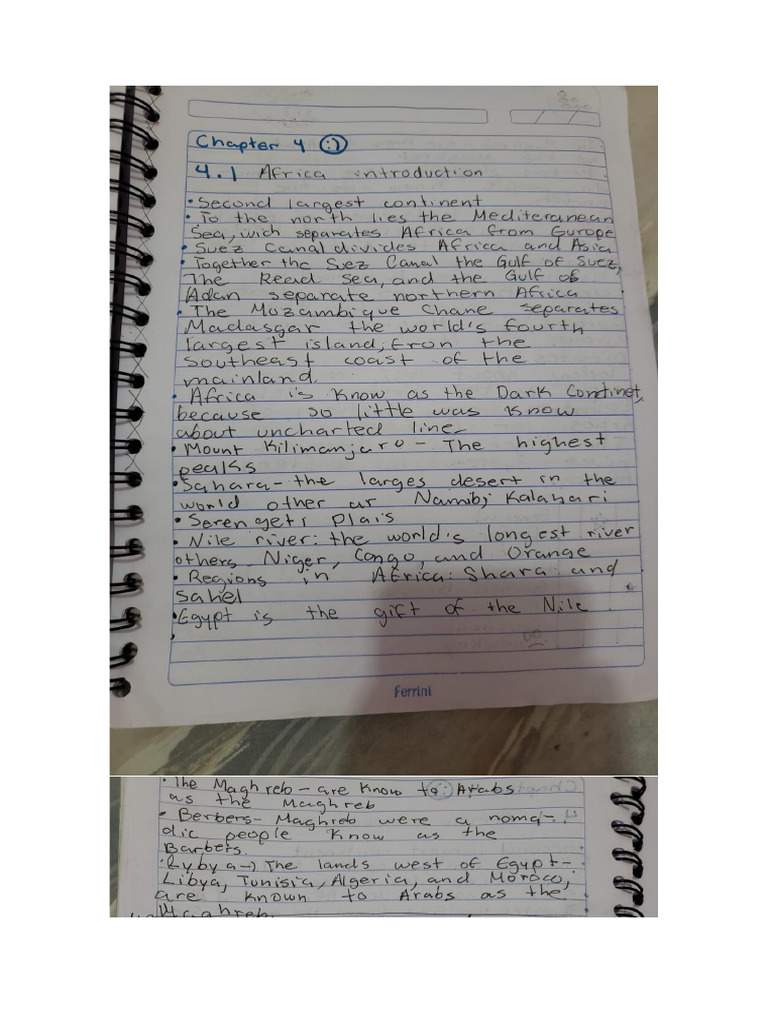 Chapter 4 :)
4.1 Africa introduction
• Second largest continent
• To the north lies the Mediteranean
Sea, wich separates Africa from Europe
• Suez Canal divides Africa and Asia
• Together the Suez Canal the Gulf of Suez,
The Read Sea, and the Gulf of
Adan separate northern Africa
• The Mozambique Chane separates
Madasgar the world's fourth
largest island, fron the
southeast coast of the
mainland.
• Africa is know as the Dark Continet,
because so little was know
about uncharted line
• Mount Kilimanjaro - The highest
peakss
• Sahara - the larges desert in the
world other ar Namibi Kalahari
• Serengeti Plais
• Nile river: the world's longest river
others - Niger, Congo, and Orange
• Regions in Africa: Shara and
Sahel
• Egypt is the gift of the Nile
Ferrini
• The Maghreb - are know to Arabs
as the Maghreb
• Berbers - Maghreb were a noma-
dic people know as the
Barbers.
The lands west of Egypt -
Libya, Tunisia, Algeria, and Moroco,
are known to Arabs as the
Maghreb.